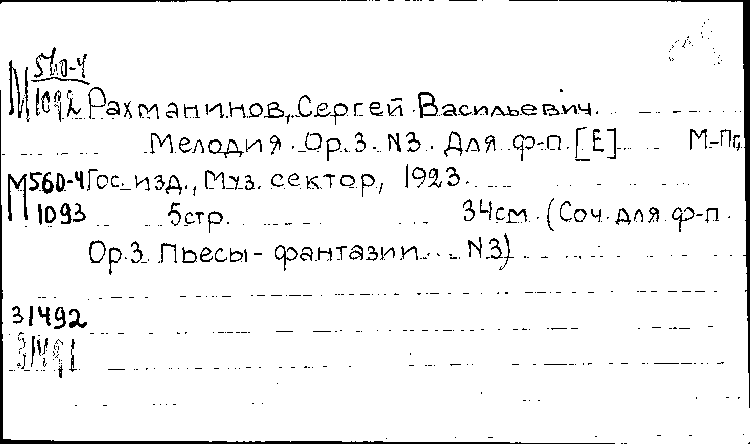 М 560-4
1092 Рахманинов, Сергей Васильевич.
Мелодия. Op.3. N3. Для ф-п. [E] М.-Пг.,
М 560-4 Гос. изд., Муз. сектор, 1923.
1093 5стр. 34см. (Соч. для ф-п.
Op.3. Пьесы-фантазии... N3)
31492
31491